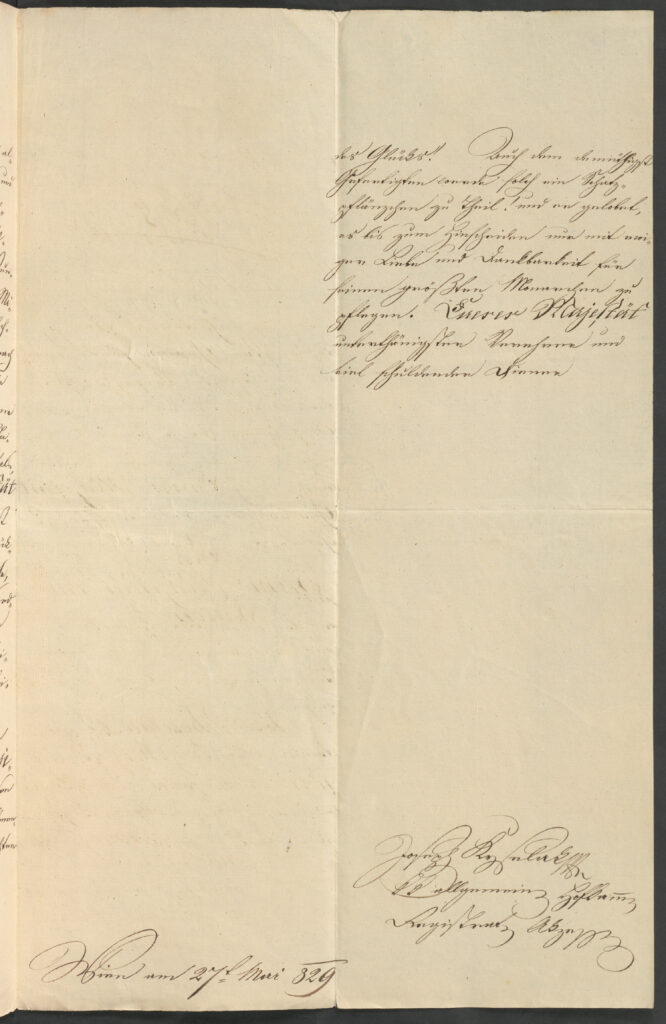 des Glücks! Auch dem demüthigst
Gefertigten werde solch ein Schutz-
pflänzchen zu Theil! und er gelobet,
es bis zum Hinscheiden nur mit ewi-
ger Liebe und Dankbarkeit für
seinen größten Monarchen zu
pflegen. Euerer Majestät
unterthänigster Verehrer und
viel schuldender Diener
Joseph Kyselak
kk allgemein Hofkamm
Registrat Akzess
Wien am 27t Mai 829